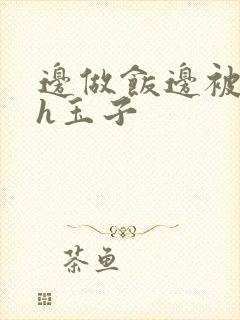 邊做飯邊被
h玉子
茶魚